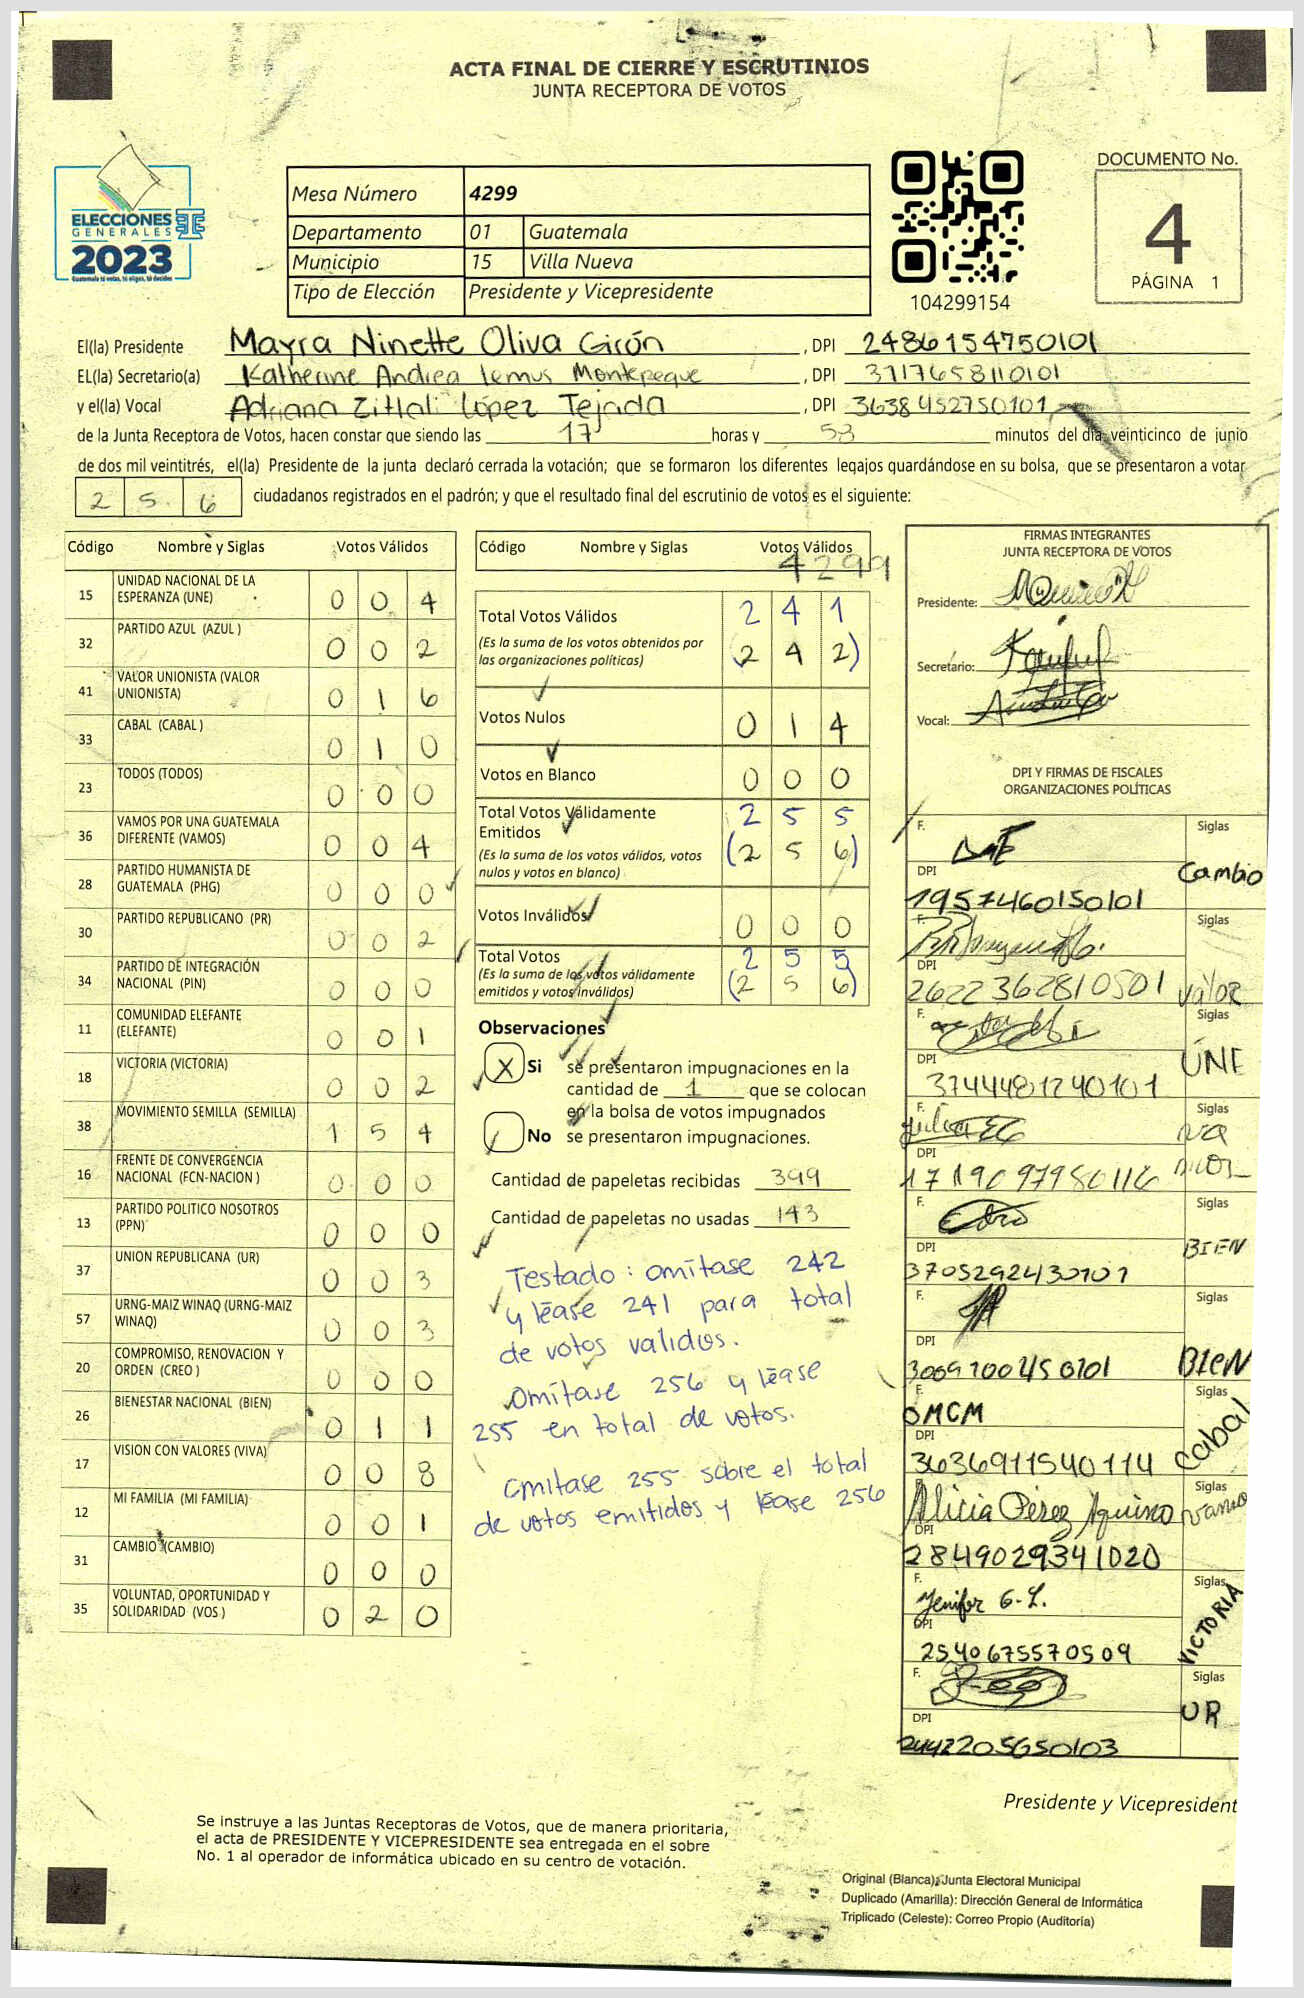 ACTA FINAL DE CIERRE Y ESCRUTINIOS
JUNTA RECEPTORA DE VOTOS
ELECCIONES
GENERALES
2023
Guatemala tú votas, tú eliges, tú decides
Mesa Número 4299
Departamento 01 Guatemala
Municipio 15 Villa Nueva
Tipo de Elección Presidente y Vicepresidente
104299154
DOCUMENTO No.
4
PÁGINA 1
El(la) Presidente Mayra Ninette Oliva Girón , DPI 2486154750101
EL(la) Secretario(a) Katherine Andrea Lemus Montepeque , DPI 3717658110101
y el(la) Vocal Adriana Zitlali López Tejada , DPI 3638452750101
de la Junta Receptora de Votos, hacen constar que siendo las 17 horas y 58 minutos del día veinticinco de junio
de dos mil veintitrés, el(la) Presidente de la junta declaró cerrada la votación; que se formaron los diferentes legajos guardándose en su bolsa, que se presentaron a votar
2 5 6 ciudadanos registrados en el padrón; y que el resultado final del escrutinio de votos es el siguiente:
Código Nombre y Siglas Votos Válidos
15 UNIDAD NACIONAL DE LA ESPERANZA (UNE) 0 0 4
32 PARTIDO AZUL (AZUL ) 0 0 2
41 VALOR UNIONISTA (VALOR UNIONISTA) 0 1 6
33 CABAL (CABAL ) 0 1 0
23 TODOS (TODOS) 0 0 0
36 VAMOS POR UNA GUATEMALA DIFERENTE (VAMOS) 0 0 4
28 PARTIDO HUMANISTA DE GUATEMALA (PHG) 0 0 0
30 PARTIDO REPUBLICANO (PR) 0 0 2
34 PARTIDO DE INTEGRACIÓN NACIONAL (PIN) 0 0 0
11 COMUNIDAD ELEFANTE (ELEFANTE) 0 0 1
18 VICTORIA (VICTORIA) 0 0 2
38 MOVIMIENTO SEMILLA (SEMILLA) 1 5 4
16 FRENTE DE CONVERGENCIA NACIONAL (FCN-NACION ) 0 0 0
13 PARTIDO POLITICO NOSOTROS (PPN) 0 0 0
37 UNION REPUBLICANA (UR) 0 0 3
57 URNG-MAIZ WINAQ (URNG-MAIZ WINAQ) 0 0 3
20 COMPROMISO, RENOVACION Y ORDEN (CREO ) 0 0 0
26 BIENESTAR NACIONAL (BIEN) 0 1 1
17 VISION CON VALORES (VIVA) 0 0 8
12 MI FAMILIA (MI FAMILIA) 0 0 1
31 CAMBIO (CAMBIO) 0 0 0
35 VOLUNTAD, OPORTUNIDAD Y SOLIDARIDAD (VOS ) 0 2 0
Código Nombre y Siglas Votos Válidos
4299
Total Votos Válidos 2 4 1
(Es la suma de los votos obtenidos por
las organizaciones políticas) (2 4 2)
Votos Nulos 0 1 4
Votos en Blanco 0 0 0
Total Votos Válidamente
Emitidos 2 5 5
(Es la suma de los votos válidos, votos
nulos y votos en blanco) (2 5 6)
Votos Inválidos 0 0 0
Total Votos 2 5 5
(Es la suma de los votos válidamente
emitidos y votos inválidos) (2 5 6)
Observaciones
X Si se presentaron impugnaciones en la
cantidad de 1 que se colocan
en la bolsa de votos impugnados
No se presentaron impugnaciones.
Cantidad de papeletas recibidas 399
Cantidad de papeletas no usadas 143
Testado: omítase 242
y léase 241 para total
de votos validos.
Omítase 256 y léase
255 en total de votos.
Omitase 255 sobre el total
de votos emitidos y léase 256
FIRMAS INTEGRANTES
JUNTA RECEPTORA DE VOTOS
Presidente:
Secretario:
Vocal:
DPI Y FIRMAS DE FISCALES
ORGANIZACIONES POLÍTICAS
F. Siglas
DPI Cambio
1957460150101
F. Siglas
DPI
2622362810501 Valor
F. Siglas
DPI UNE
3744481240101
F. Siglas
DPI
1719097980116
F. Siglas
DPI BIEN
3705292430101
F. Siglas
DPI
3009700450101 BIEN
F. Siglas
OMCM
DPI Cabal
3636911540114
Siglas
Alicia Pérez Aquino Vamos
DPI
2849029341020
F. Siglas
Yenifer G.L.
DPI VICTORIA
2540675570509
F. Siglas
DPI UR
2442205650103
Presidente y Vicepresident
Se instruye a las Juntas Receptoras de Votos, que de manera prioritaria,
el acta de PRESIDENTE Y VICEPRESIDENTE sea entregada en el sobre
No. 1 al operador de informática ubicado en su centro de votación.
Original (Blanca): Junta Electoral Municipal
Duplicado (Amarilla): Dirección General de Informática
Triplicado (Celeste): Correo Propio (Auditoría)